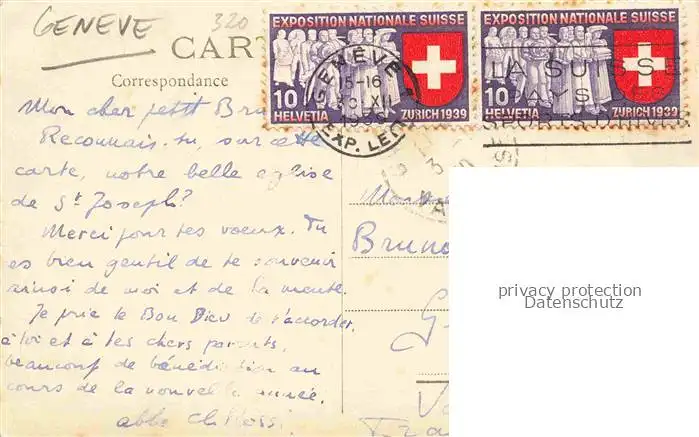 GENEVE
320
CAR
Correspondance
EXPOSITION NATIONALE SUISSE
10
HELVETIA
ZURICH 1939
EXPOSITION NATIONALE SUISSE
10
HELVETIA
ZURICH 1939
GENÈVE
15-16
XII
EXP. LE
LA SUISSE
Mon cher petit Bru
Reconnais-tu, sur cette
carte, notre belle eglise
de St Joseph?
Merci pour tes voeux. Tu
es bien gentil de te souvenir
ainsi de moi et de la
Je prie le Bon Dieu de t'accorder,
à toi et à tes chers parents,
beaucoup de bénédiction au
cours de la nouvelle année.
abbé Ch. Rossi
Bruno
G
privacy protection
Datenschutz